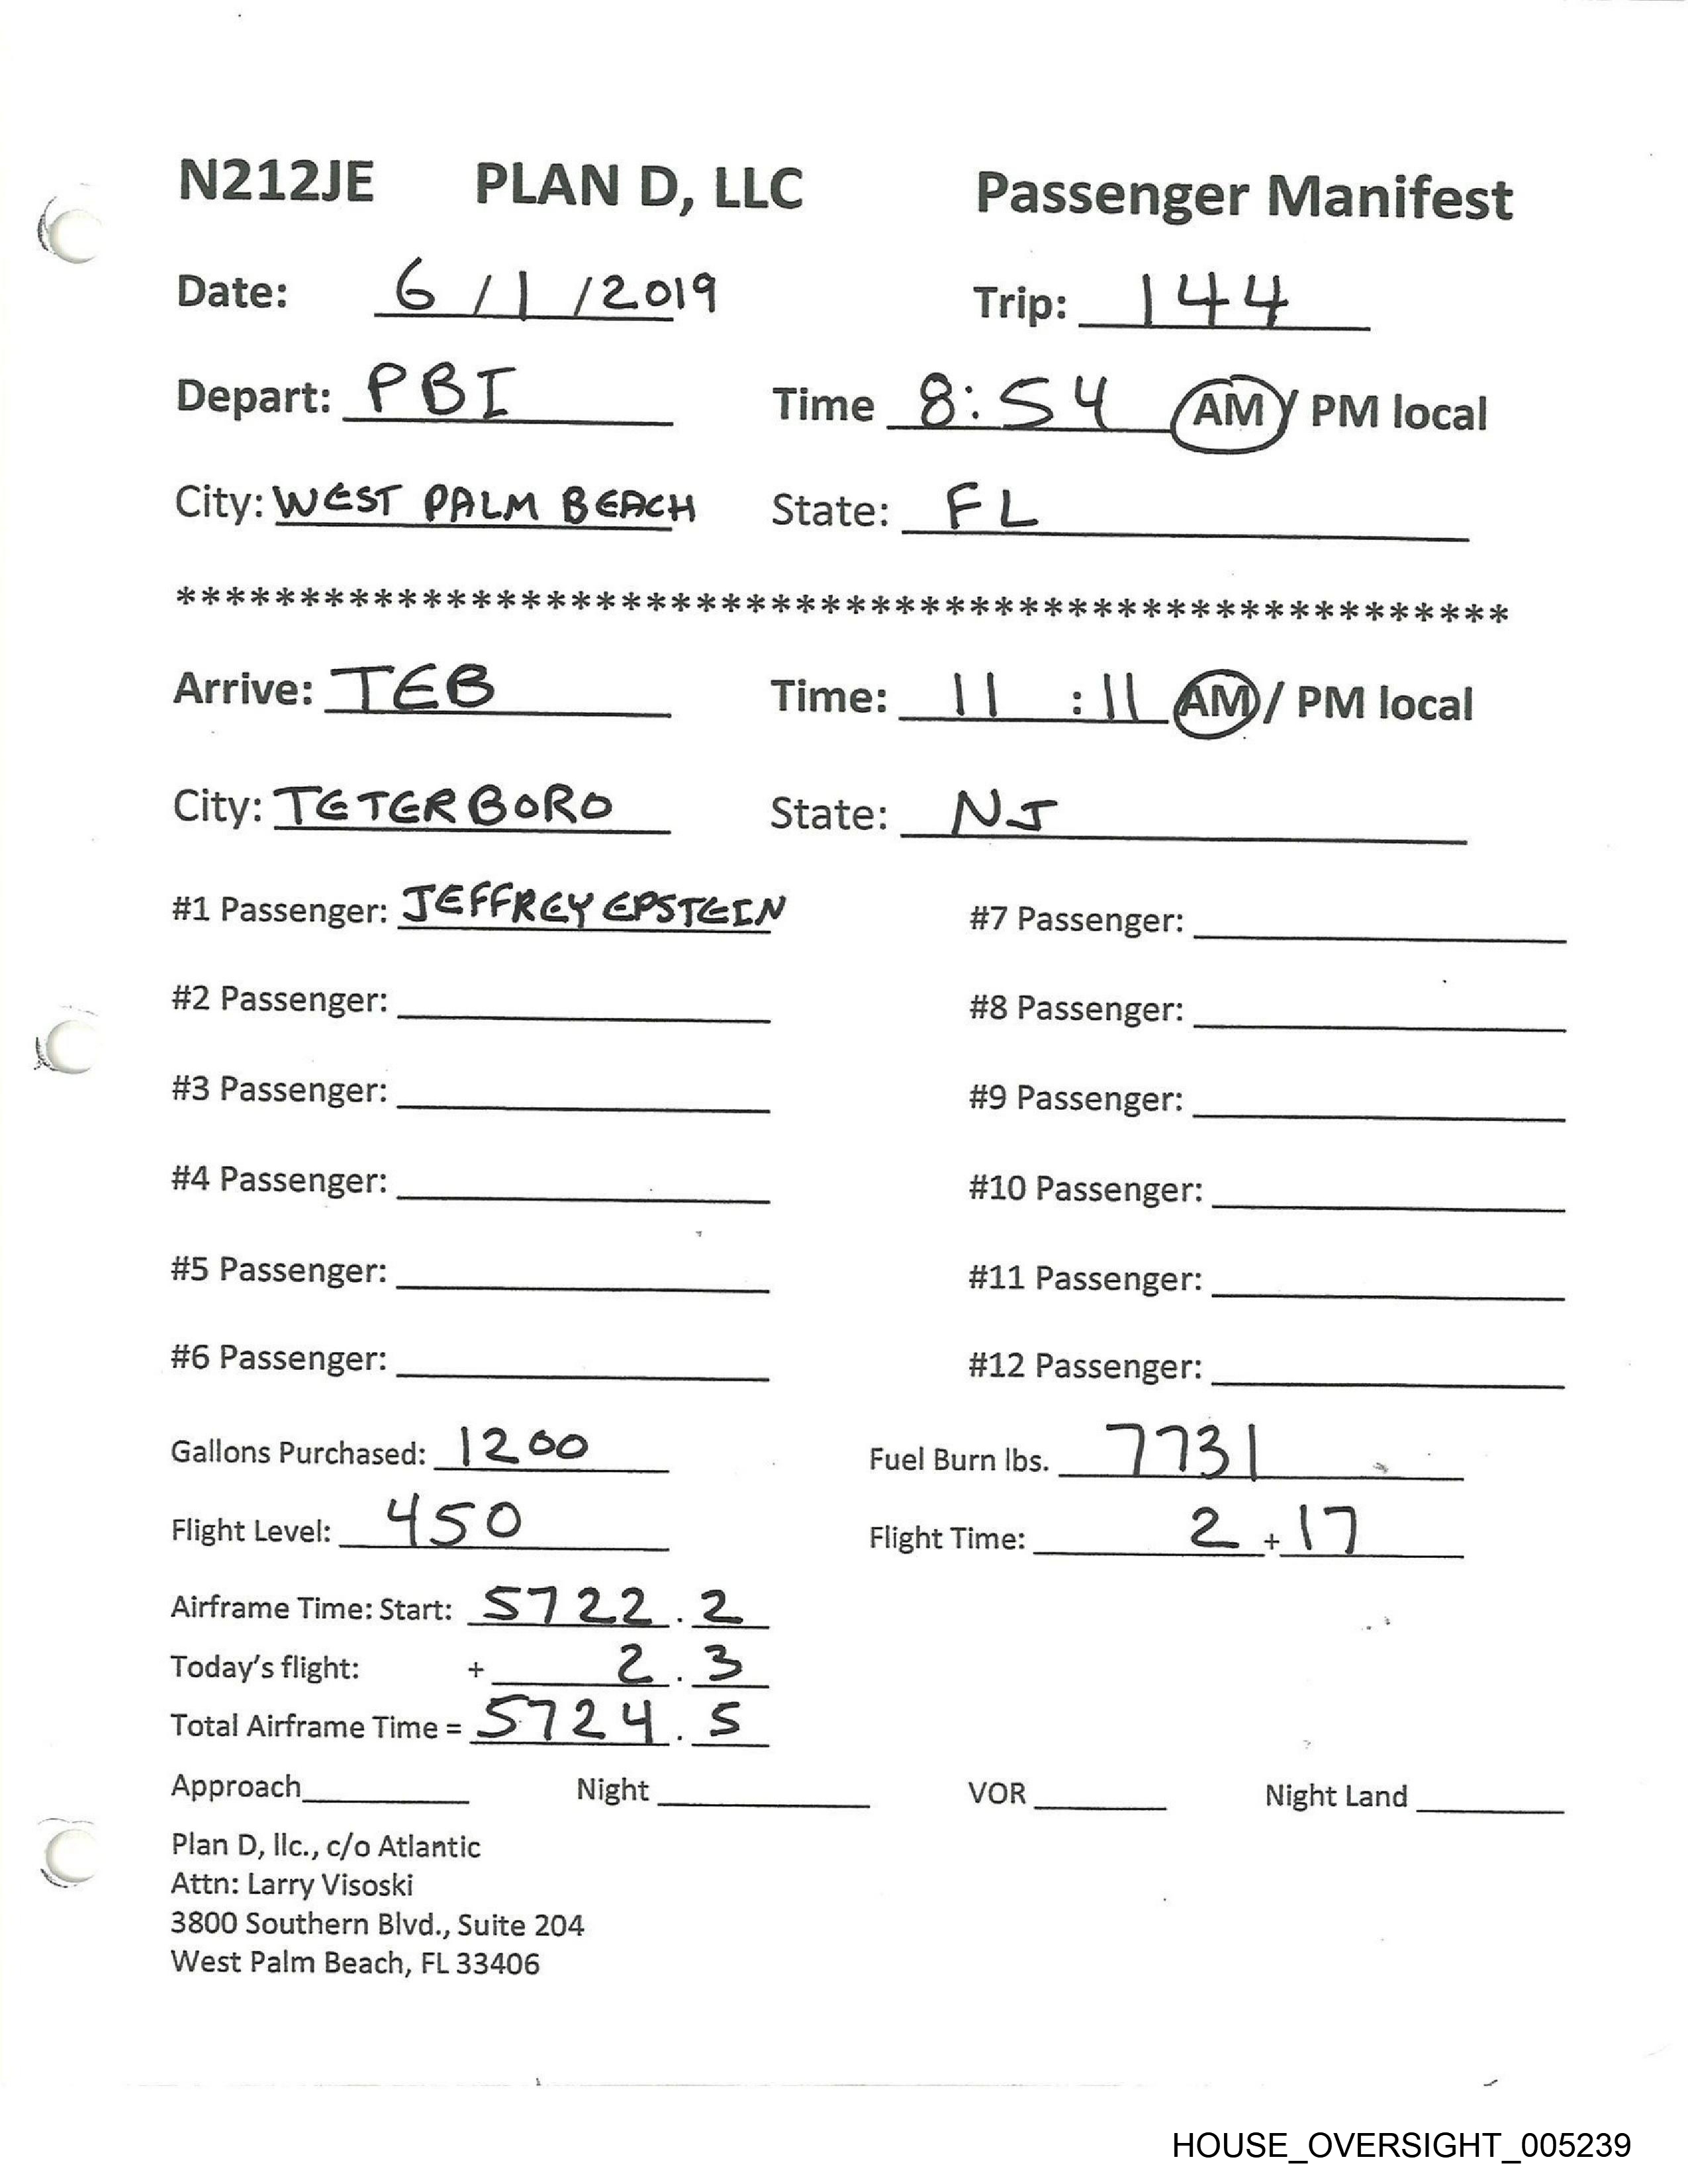 N212JE PLAN D, LLC Passenger Manifest
Date: 6 / 1 / 2019 Trip: 144
Depart: PBI Time 8:54 AM / PM local
City: WEST PALM BEACH State: FL
******************************************************
Arrive: TEB Time: 11 : 11 AM / PM local
City: TETERBORO State: NJ
#1 Passenger: JEFFREY EPSTEIN #7 Passenger:
#2 Passenger: #8 Passenger:
#3 Passenger: #9 Passenger:
#4 Passenger: #10 Passenger:
#5 Passenger: #11 Passenger:
#6 Passenger: #12 Passenger:
Gallons Purchased: 1200 Fuel Burn lbs. 7731
Flight Level: 450 Flight Time: 2 + 17
Airframe Time: Start: 5722 . 2
Today's flight: + 2 . 3
Total Airframe Time = 5724 . 5
Approach Night VOR Night Land
Plan D, llc., c/o Atlantic
Attn: Larry Visoski
3800 Southern Blvd., Suite 204
West Palm Beach, FL 33406
HOUSE_OVERSIGHT_005239